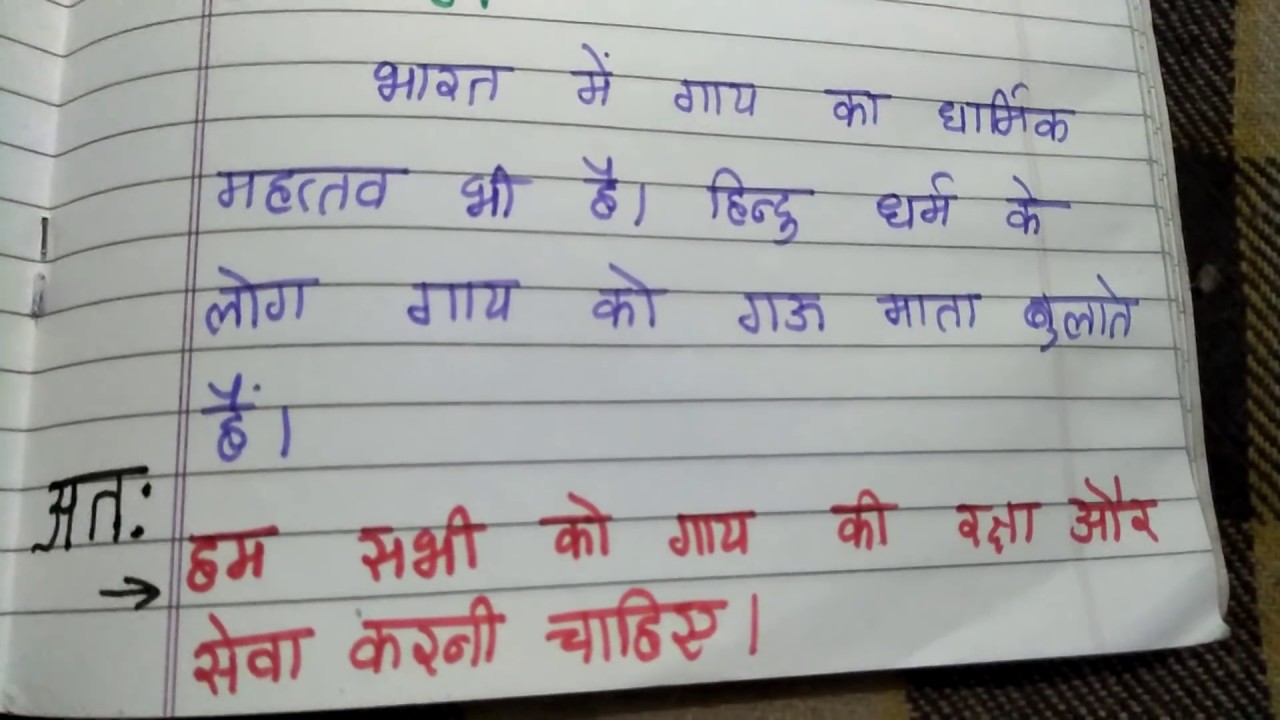 भारत में गाय का धार्मिक
महत्तव भी है। हिन्दु धर्म के
लोग गाय को गऊ माता बुलाते
हैं।
अतः
→ हम सभी को गाय की रक्षा और
सेवा करनी चाहिए।